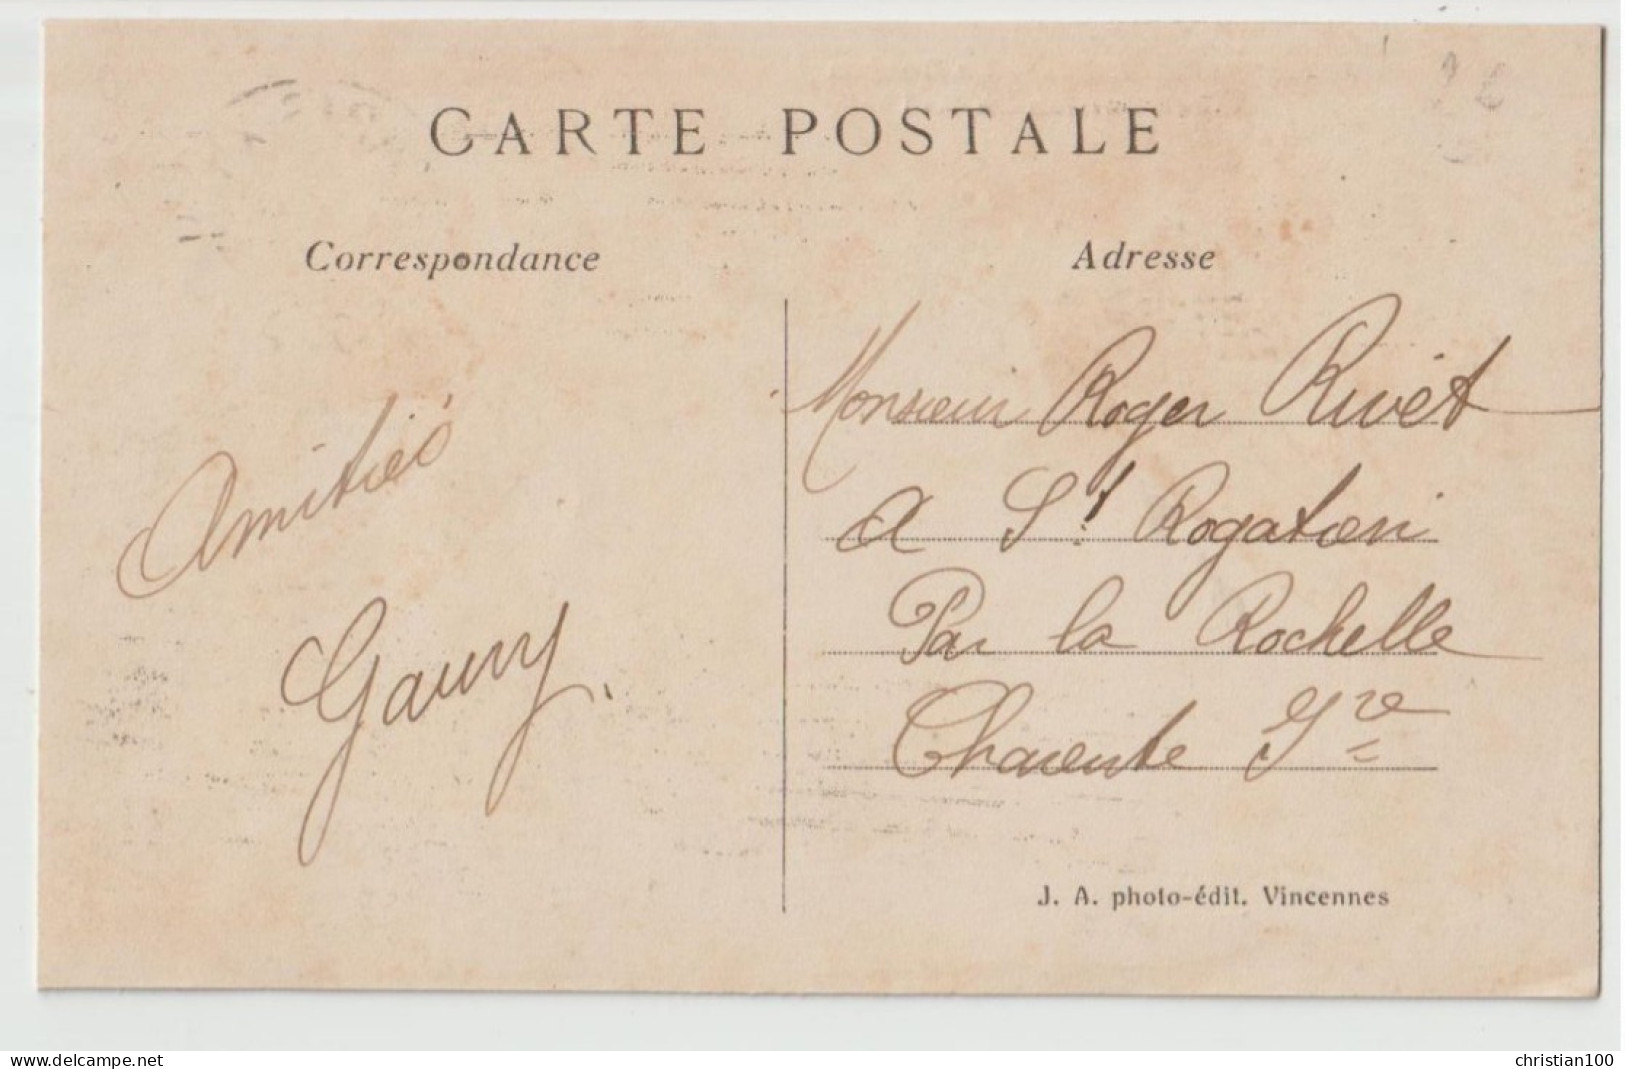 CARTE POSTALE
Correspondance
Adresse
Amitiés
Gauny.
Monsieur Roger Rivet
A St Rogatien
Par la Rochelle
Charente Ire
J. A. photo-édit. Vincennes
www.delcampe.net
christian100